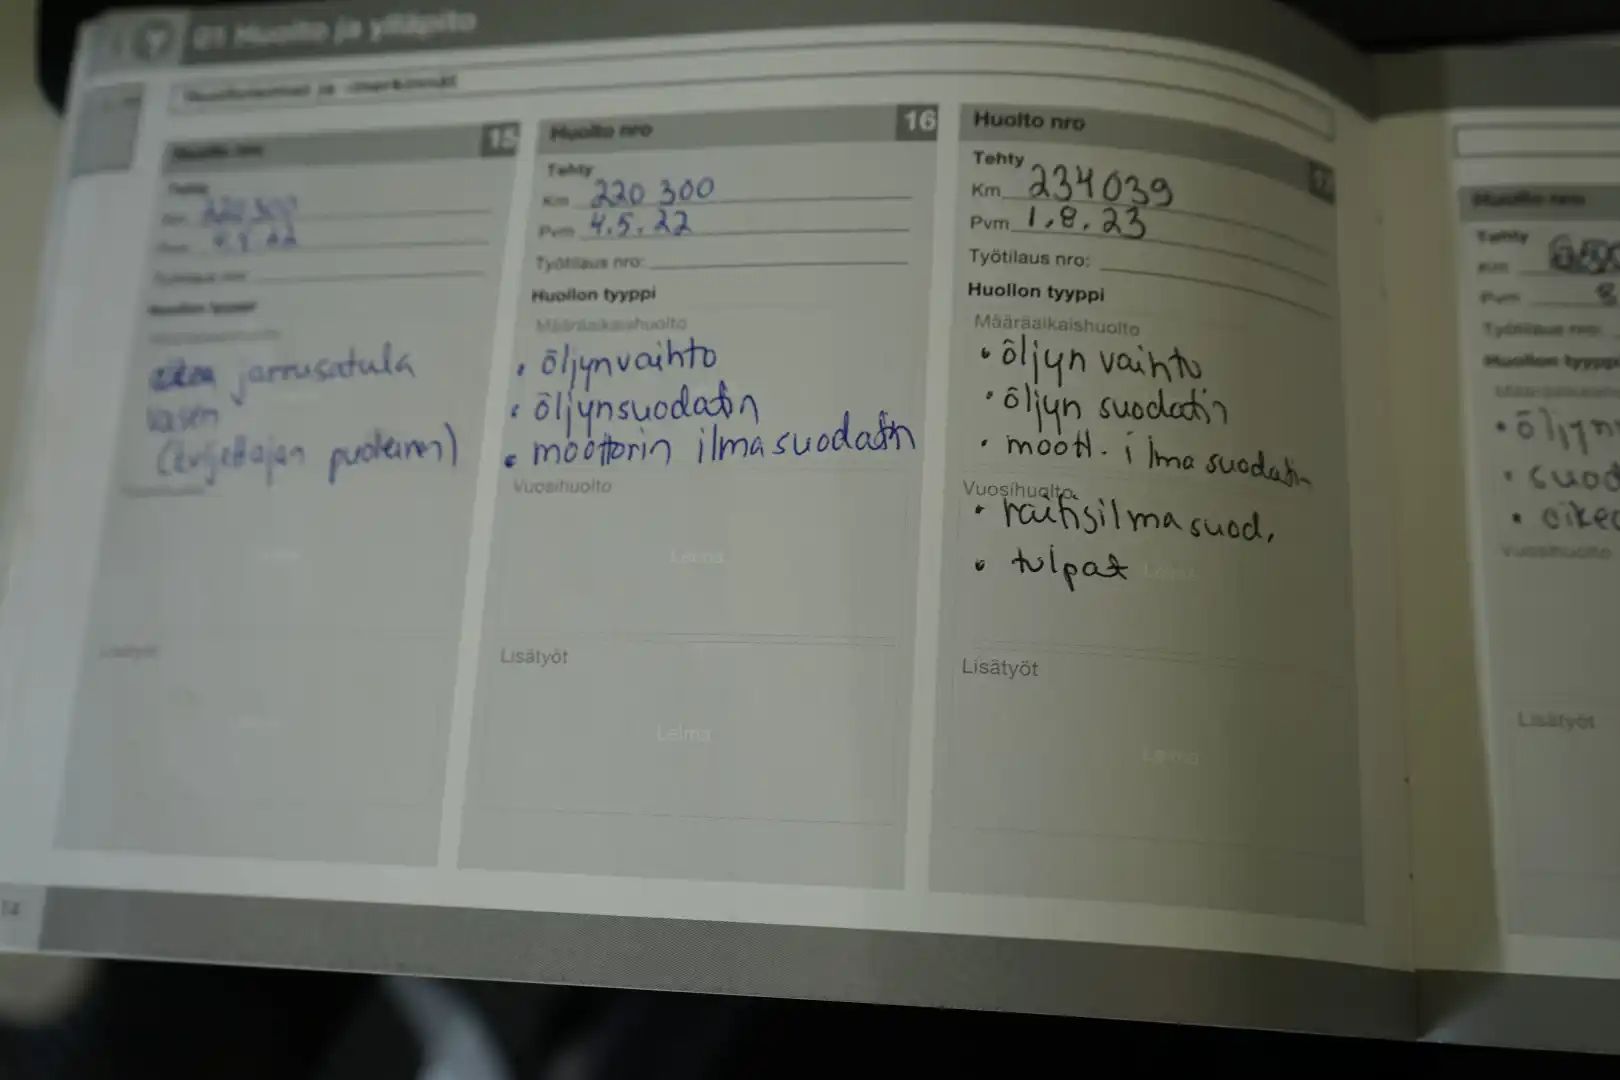 01 Huolto ja ylläpito
Huolto nro 15
Tehty
Km 220 300
Pvm 4.5.22
Työtilaus nro:
Huollon tyyppi
jarrusatula
vasen
(kuljettajan puoleinen)
Lisätyöt
Huolto nro 16
Tehty
Km 220 300
Pvm 4.5.22
Työtilaus nro:
Huollon tyyppi
Määräaikaishuolto
• öljynvaihto
• öljynsuodatin
• moottorin ilmasuodatin
Vuosihuolto
Leima
Lisätyöt
Leima
Huolto nro
Tehty
Km 234039
Pvm 1.8.23
Työtilaus nro:
Huollon tyyppi
Määräaikaishuolto
• öljyn vaihto
• öljyn suodatin
• moott. ilmasuodatin
Vuosihuolto
• raitisilmasuod.
• tulpat
Leima
Lisätyöt
Leima
Huolto nro
Tehty
Km
Pvm 8
Työtilaus nro:
Huollon tyyppi
Vuosihuolto
Lisätyöt
14